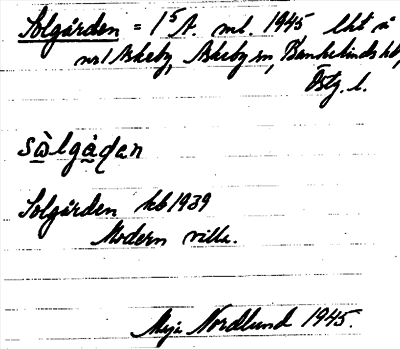 Solgården = 1⁵ A. ml. 1945 lht å
nr 1 Askeby, Askeby sn, Bankekinds hd,
Östg. l.
sòlgå̀ḍan
Solgården kb 1939
Modern villa.
Nordlund 1945.